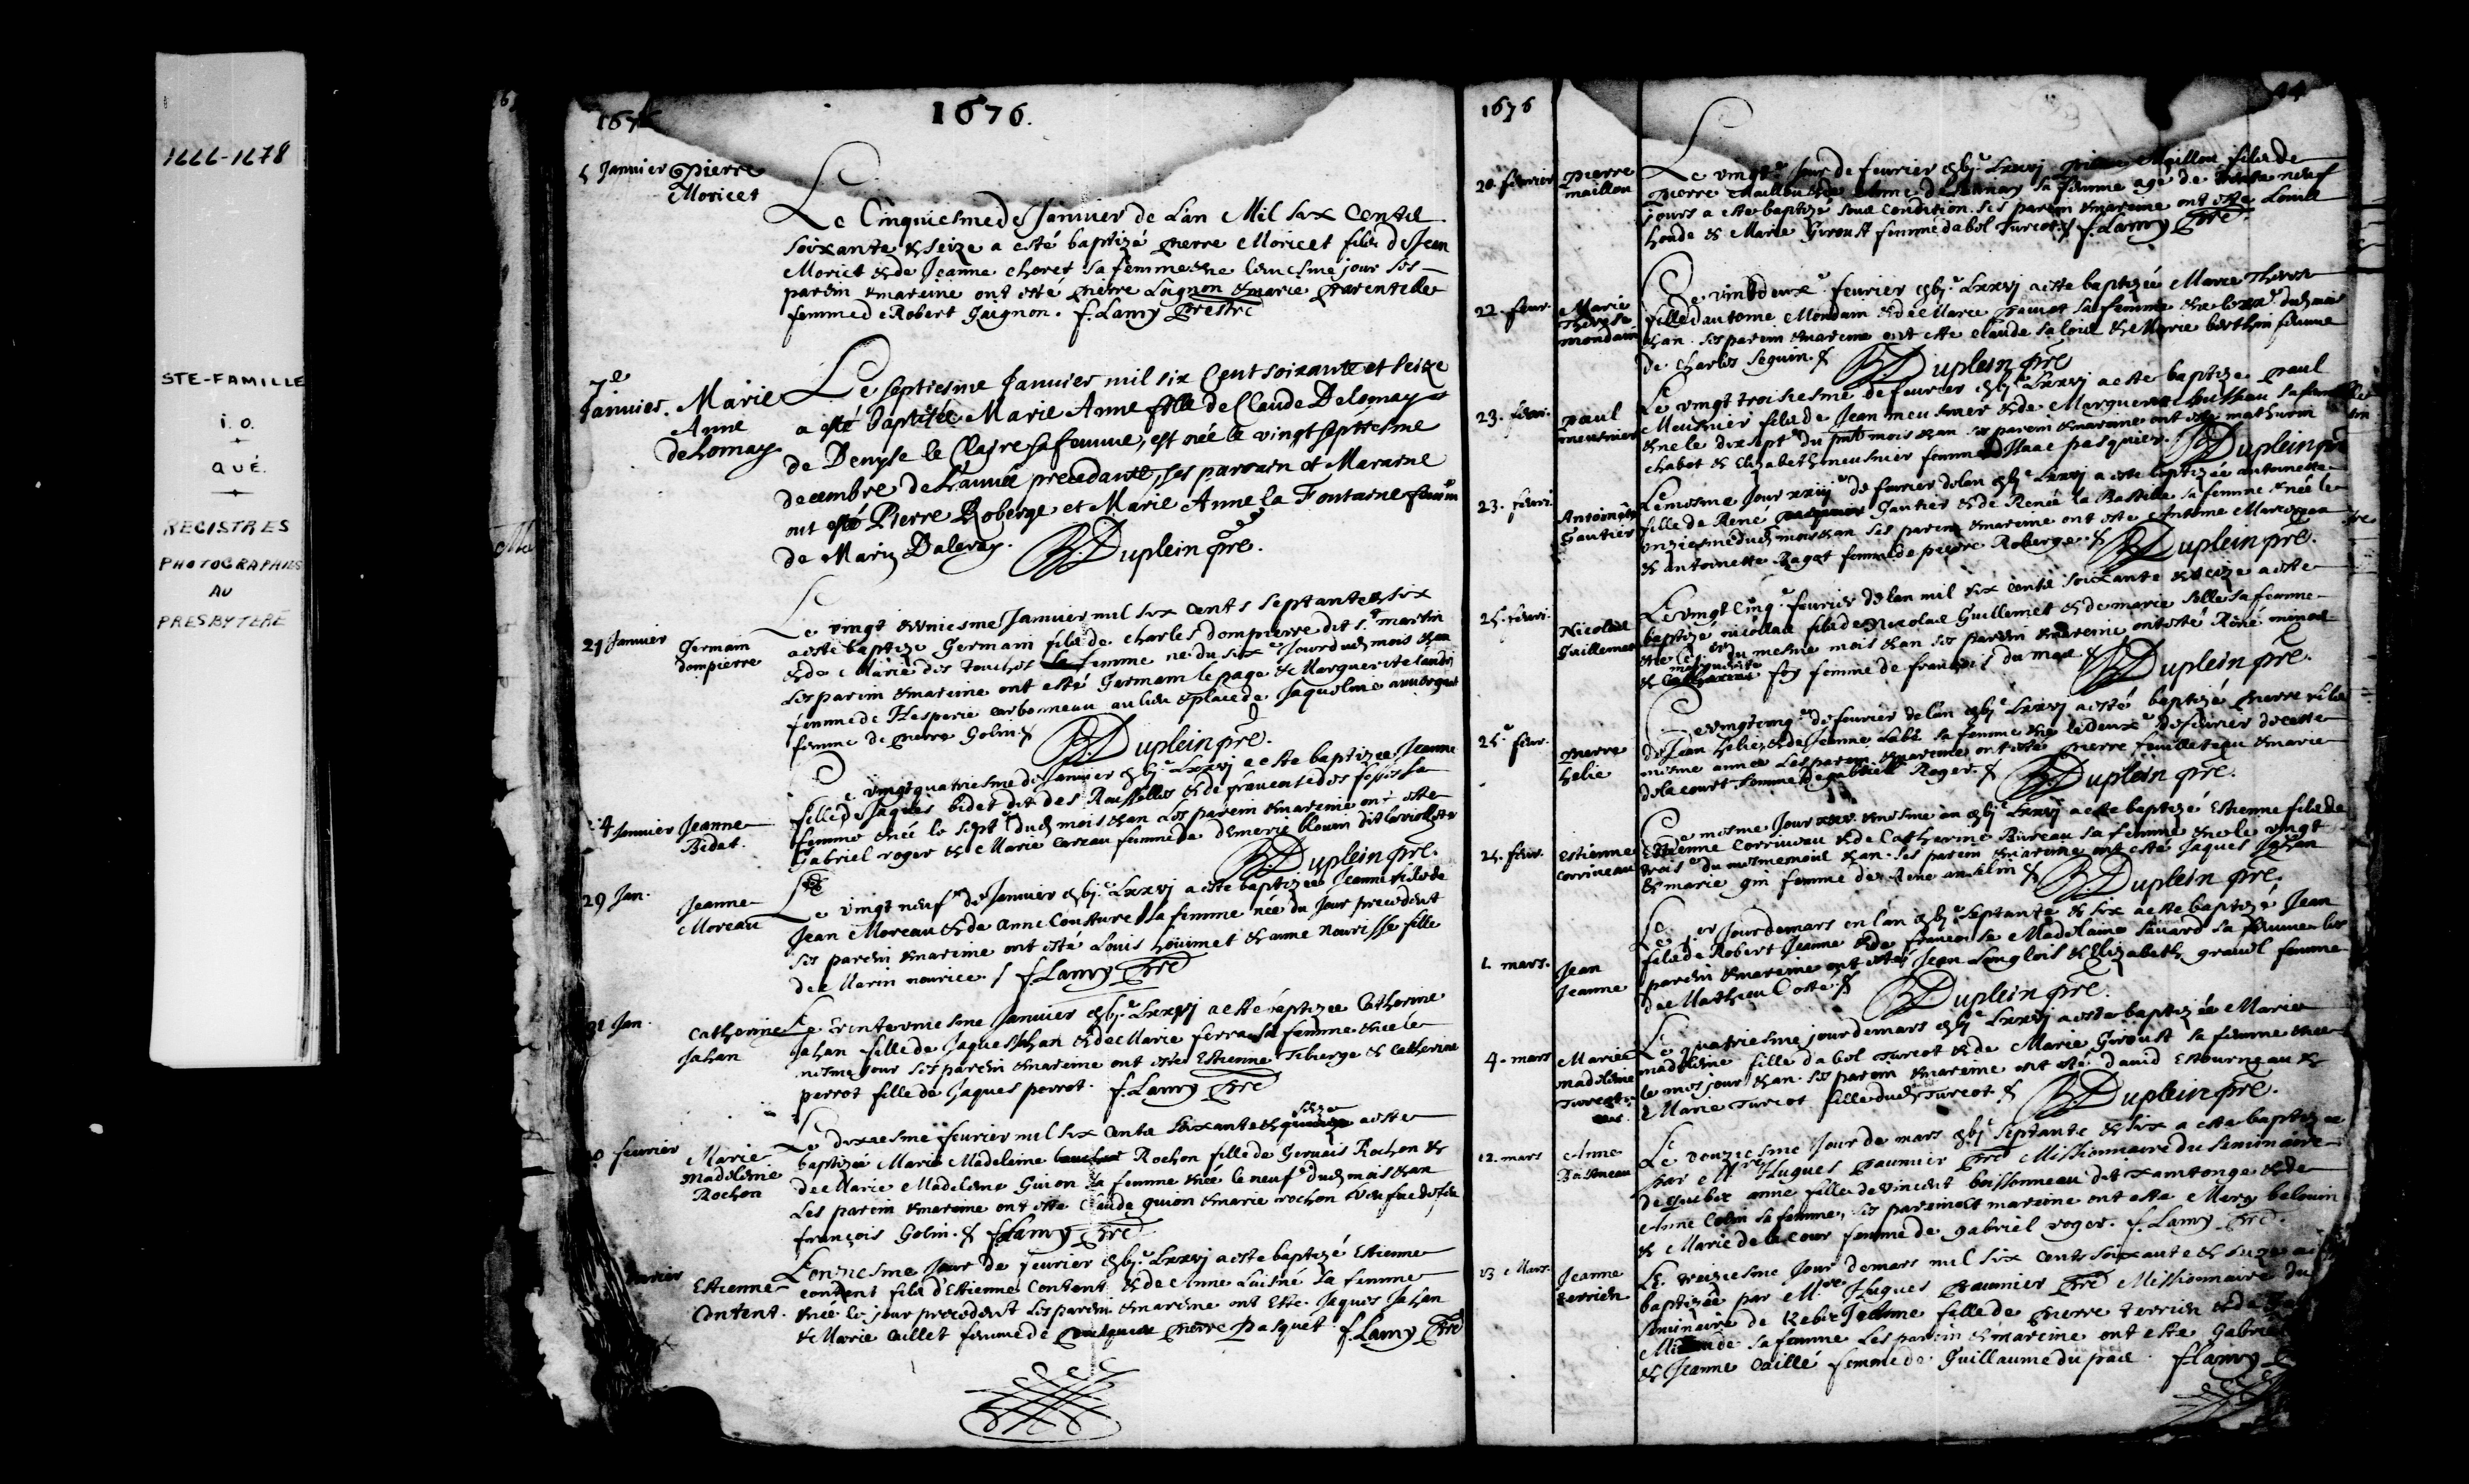 1666-1678
STE-FAMILLE
i. o.
QUÉ.
REGISTRES
PHOTOGRAPHIÉS
AU
PRESBYTERE
1676.
5 Janvier Pierre
Moricet
Le Cinquiesme de Janvier de Lan Mil six Cents
soixante & seize a esté baptizé pierre Moricet fils de Jean
Moricet & de Jeanne choret sa femme & ne le mesme jour ses
parein & mareine ont esté pierre Loignon & marie parentelle
femme de Robert Gaignon. f. Lamy Prestre
7e
Janvier. Marie
Anne
deLomay
Le septiesme Janvier mil six Cent soixante et seize
a esté baptisée Marie Anne fille de Claude Delomay et
de Denyse le Claire sa femme, est née le vingt septiesme
decembre de L'année precedante, ses parrein et Mareine
ont esté Pierre Roberge et Marie Anne la Fontaine femm
de Marin Daleray. Duplein pre.
21 Janvier Germain
dompierre
Le vingt & uniesme Janvier mil six cents septante & six
a esté baptizé Germain fils de charles dompierre dit st martin
& de Marie des touches sa femme né du six e Jour dud mois & an
Les parein & mareine ont esté Germain le page & Marguerite
femme de Hesperie carbonneau au lieu & place de Jaqueline
femme de pierre Gobin &
Duplein pre.
24 Janvier Jeanne
Bidet.
Le vingt quatriesme de Janvier Lxxvj a este baptizee Jeanne
fille de Jaques bidet dit des Roussellets & de francoise des fossés sa
femme & née le sept e dud mois & an Les parein & mareine ont este
Gabriel roger & Marie careau femme de emerie blouin dit laviollette
Duplein pre.
29 Jan.
Jeanne
Moreau
Le vingt neuf e de Janvier Lxxvj a esté baptizée Jeanne fille de
Jean Moreau & de Anne Couture sa femme née du Jour precedent
ses parein & mareine ont esté Louis houimet & anne nourisse fille
de Marin nourice. f. Lamy Pre
31 Jan.
Catherine
Jahan
Le trente uniesme Janvier Lxxvj a esté baptizee Catherine
Jahan fille de Jaques Jahan & de Marie ferra sa femme & née le
mesme jour ses parein & mareine ont estés Estienne Teberge & Catherine
perrot fille de Jaques perrot. f. Lamy Pre
10 fevrier Marie
Madeleine
Rochon
Le dixiesme fevrier mil six Cents soixante & seize a esté
baptizée Marie Madeleine Rochon fille de Gervais Rochon &
de Marie Madeleine Guion sa femme & née le neuf e dud mois & an
Les parein & mareine ont este Claude guion & marie rochon
françois Gobin. & f. Lamy Pre
Estienne
Content.
L'onziesme Jour de fevrier Lxxvj a este baptizé Estienne
content fils d'Estienne Content & de Anne Laisné sa femme
& né le jour precedent Les parein & mareine ont Este. Jaques Jahan
& Marie caillet femme de pierre Pasquet f. Lamy Pre
1676
44
20. fevrier pierre
maillou
Le vingt e Jour de fevrier Lxxvj Maillou fils de
pierre Maillou & de Anne delaunay sa femme agé de neuf
jours a este baptizé sous condition. ses parein & mareine ont este Louis
houde & Marie Giroust femme d'abel Turcot. f. Lamy Pre
22. fevr. Marie
Therese
mondain
Le vint deux e fevrier Lxxvj a este baptizée Marie Therese
fille d'antoine Mondain & de Marie pauiot sa femme & née le xx e dud mois
& an. ses parein & mareine ont este claude salois & Marie berthin femme
de charles seguin. & Duplein pre
23. fevri. paul
meusnier
Le vingt troisiesme de fevrier Lxxvj a este baptize paul
Meusnier fils de Jean meusnier & de Marguerite housseau sa fem
& ne le dix sept e du pnt mois & an ses parein & mareine ont este mathurin
chabot & Elizabeth meusnier femme d'Isaac pasquier. Duplein pre
23. fevri.
Antoinette
Gautier
Le mesme Jour xxiij e de fevrier de lan Lxxvj a este baptizée antoinette
fille de René Gautier & de Renée la Bastille sa femme & née le
onziesme dud mois & an Ses parein & mareine ont este Antoine
& antoinette Bagat femme de pierre Roberge. & Duplein pre.
25. fevri.
Nicolas
Guillemet
Le vingt Cinq e fevrier de lan mil six cents soixante & seize a este
baptizé nicollas fils de Nicolas Guillemet & de marie selle sa femme
& né le du mesme mois & an ses parein & mareine ont esté René minot
& marguerite foy femme de françois du mas. & Duplein pre.
25e fevr.
pierre
helie
Le vingt cinq e de fevrier de lan Lxxvj a esté baptizé pierre fils
de Jean helie & de Jeanne Labé sa femme & ne le deux e de fevrier de cette
mesme annee Les parein & mareine ont esté pierre feuilleteau & marie
de la court femme de gabriel Roger. & Duplein pre.
25. fevr. Estienne
Corriveau
Le mesme Jour xxv. & mesme an Lxxvj a este baptizé Estienne fils de
Estienne Corriveau & de Catherine Bureau sa femme & ne le vingt
trois e du mesme mois & an. ses parein & mareine ont este Jaques Jahan
& marie gin femme de Rene anselin & Duplein pre.
1. mars. Jean
Jeanne
Le 1er Jour de mars en l'an septante & six a este baptizé Jean
fils de Robert Jeanne & de francoise Madelaine savard sa femme les
parein & mareine ont estés Jean Langlois & Elizabeth gravil femme
de Mathieu Coste. & Duplein pre.
4. mars Marie
madeleine
Turcot.
Le quatriesme jour de mars Lxxvj a este baptizée Marie
madeleine fille dabel Turcot & de Marie Giroust sa femme & née
le mes jour & an. ses parein & mareine ont esté david Estourneau &
Marie Turcot fille dud Turcot. & Duplein pre.
12. mars Anne
Boisoneau
Le douziesme Jour de mars septante & six a este baptizee
par Mre Hugues paumier Pre Missionnaire du seminaire
de quebec anne fille de vincent boissonneau dit xantonge & de
Anne Colin sa femme, ses parein & mareine ont este Mery belouin
& Marie de la cour femme de gabriel roger. f. Lamy Pre.
13 Mars. Jeanne
terrien
Le treiziesme Jour de mars mil six cents soixante & seize a
baptizée par Mre Hugues paumier Pre Missionnaire du
seminaire de Kebec Jeanne fille de pierre terrien & de
sa femme Les parein & mareine ont este Gabriel
& Jeanne caillé femme de Guillaume du pas. f. Lamy